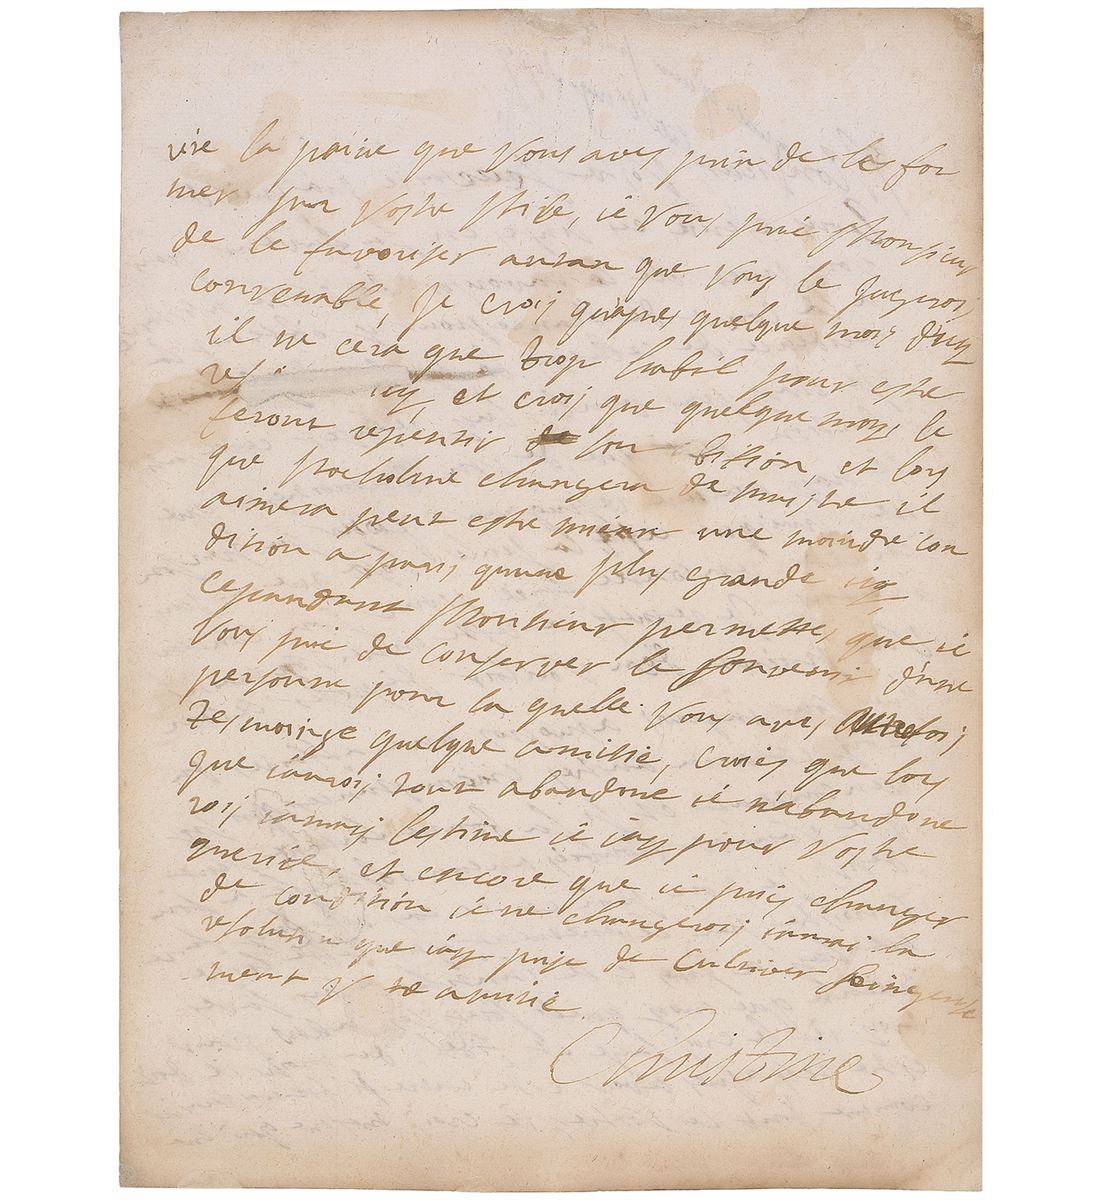 rire la paine que vous aves prin de le for
mer par vostre stile, ie vous prie Monsieur
de le favoriser autan que vous le jugerois
convenable, je crois quapres quelque mois
il ne cera que trop habil pour estre
icy, et crois que quelque mois le
feront repensir de son bision, et lors
que changera de maistre il
aimera peut estre mieux une moindre con
dision a paris quune plus grande icy
cependant Monsieur permettes que ie
vous prie de conserver le souvenir d'une
personne pour la quelle vous aves autrefois
tesmoinge quelque amitie, croies que lors
que iaurois tout abandone ie n'abandone
rois iamais lestime ie iay pour vostre
merite, et encore que ie puis changer
de condision ie ne changerois iamai la
resolution que iay prise de cultiver sincere
ment vostre amitie.
Christine